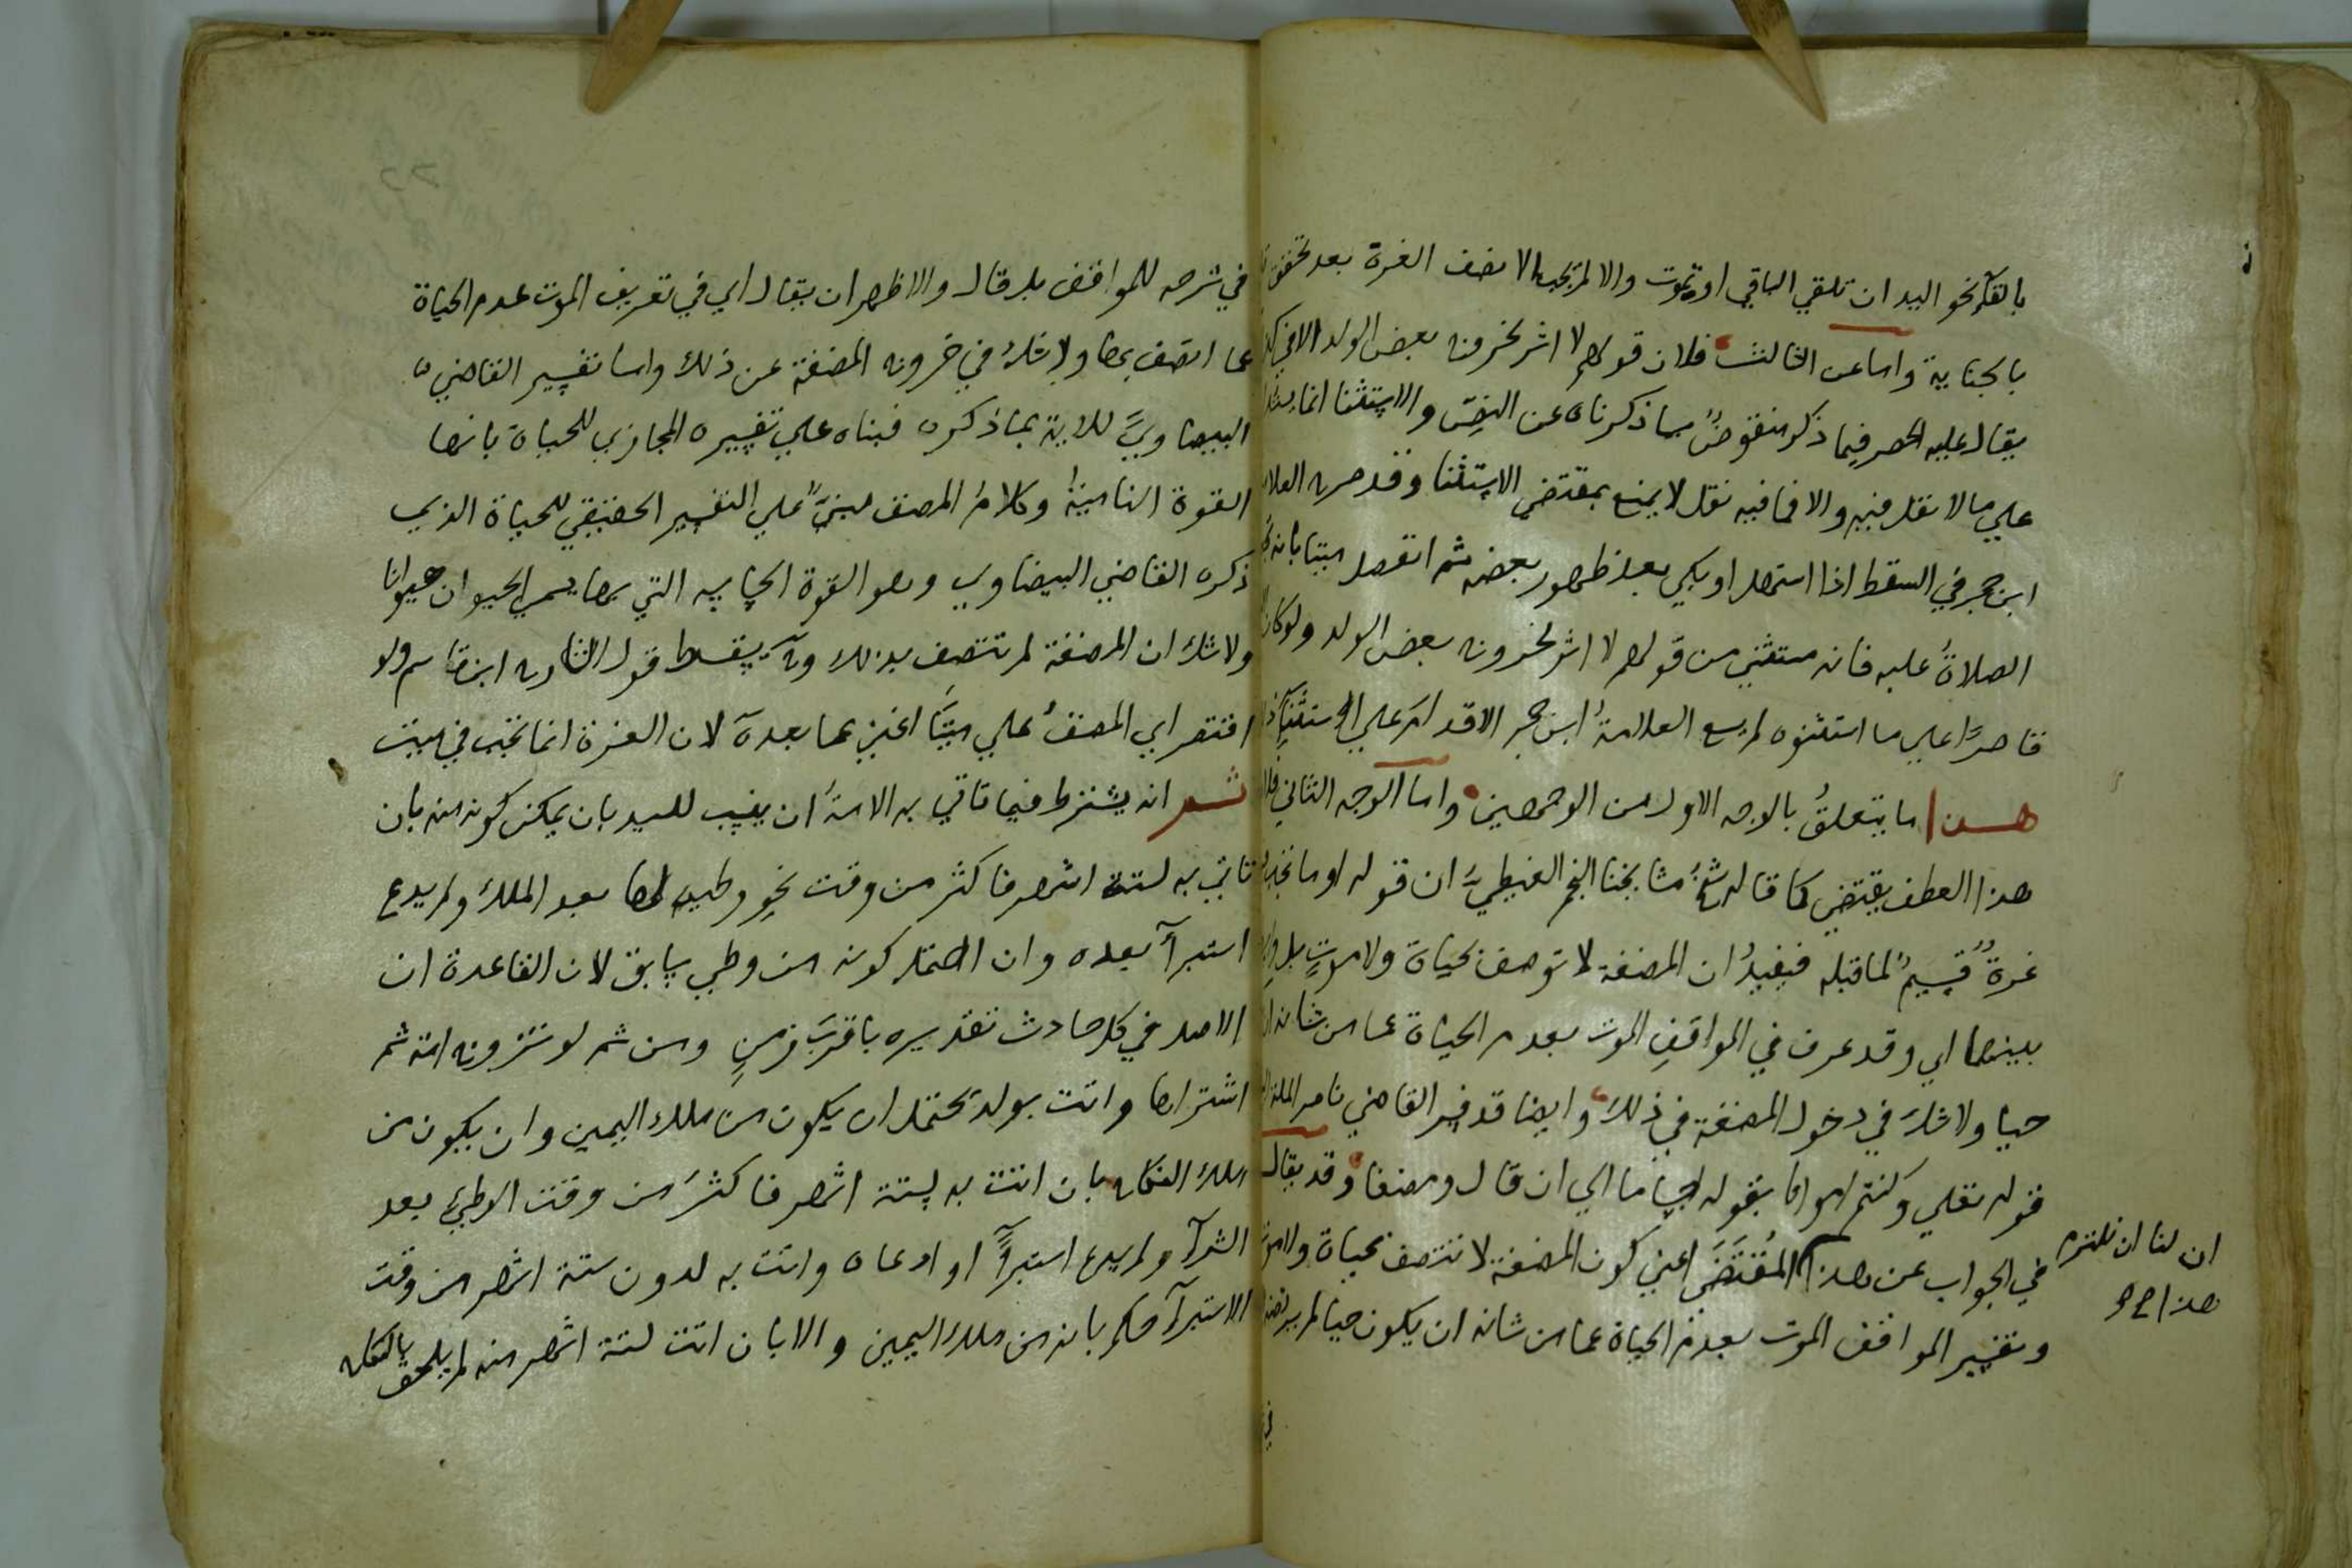 بالقآء نحو اليد ان تلقي الباقي او تموت والا لم تجب الا نصف الغرة بعد تحقق
بالجناية واما عن الثالث فلان قولهم لا اثر لخروج بعض الولد الا في
يقال عليه الحصر فيما ذكر منقوضٌ بما ذكرناه عن النصّ والاستثنا انما
علي ما لا نقل فيه والا فما فيه نقل لا يمنع بمقتضي الاستثنا وقد صرح العلامة
ابن حجر في السقط اذا استهل او بكي بعد ظهور بعضه ثم انفصل ميتا بانه
الصلاةُ عليه فانه مستثني من قولهم لا اثر لخروج بعض الولد ولو كان
قاصرًا علي ما استثنوه لم يسع العلامةُ ابن حجر الاقدام علي الاستثنآء
هذا ما يتعلقُ بالوجه الاول من الوجهين واما الوجه الثاني
هذا العطف يقتضي كما قاله شيخُ مشايخنا النجم الغيطيُّ ان قوله او ما تجب
غرةٌ قسيمٌ لما قبله فيفيدُ ان المضغة لا توصف بحياة ولا موتٍ بل
بينهما اي وقد عرف في المواقفِ الموت بعدم الحياة عما من شانه ان
حيا ولا شك في دخول المضغة في ذلك وايضا قد فسر القاضي ناصر الملة
قوله تعلي وكنتم امواتا بقوله اجساما الي ان قال ومضغا وقد يقال
في الجواب عن هذا المُقتَضَي اعني كون المضغة لا تتصف بحياة ولا موت
وتفسير المواقف الموت بعدم الحياة عما من شانه ان يكون حيا لم يرتضه
ان لنا ان نلتزم
هذا صح
في
في شرحه للمواقف بل قال والاظهر ان يقال اي في تعريف الموت عدم الحياة
عما اتصف بها ولا شك في خروج المضغة عن ذلك واما تفسير القاضي
البيضاويِّ للاية بما ذكره فبناه علي تفسيره المجازي للحياة بانها
القوة النامية وكلامُ المصنف مبنيٌّ علي التفسير الحقيقي للحياة الذي
ذكره القاضي البيضاوي وهو القوة الحساسه التي بها يسمي الحيوان حيوانا
ولا شك ان المضغة لم تتصف بذلك وبه يسقط قول الشارح ابن قاسم ولو
اقتصر اي المصنفُ علي ميتًا اغني عما بعده لان الغرة انما تجب في ميت
ثم انه يشترط فيما تاتي به الامةُ ان ينسب للسيد بان يمكن كونه منه بان
تاتي به لستة اشهر فاكثر من وقت نحو وطيه لها بعد الملك ولم يدع
استبرآ بعده وان احتمل كونه من وطي سابق لان القاعدة ان
الاصل في كل حادث تقديره باقربَ زمنٍ ومن ثم لو تزوج امة ثم
اشتراها واتت بولد يحتمل ان يكون من ملك اليمين وان يكون من
ملك النكاح بان اتت به لستة اشهر فاكثرَ من وقت الوطيِ بعد
الشرآء ولم يدع استبرآءً او ادعاه واتت به لدون ستة اشهر من وقت
الاستبرآء حكم بانه من ملك اليمين والا بان اتت لستة اشهر منه لم يلحق بالنكاح